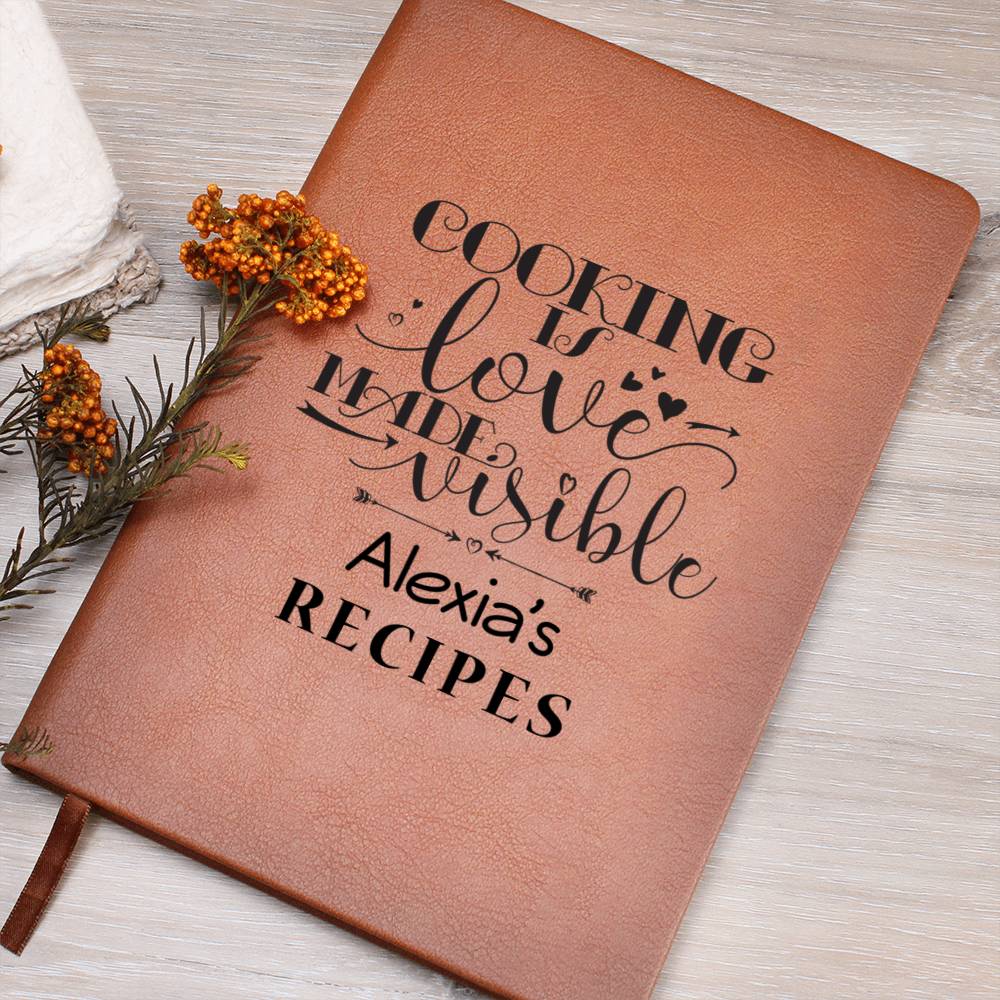 COOKING
IS
love
MADE
visible
Alexia's
RECIPES